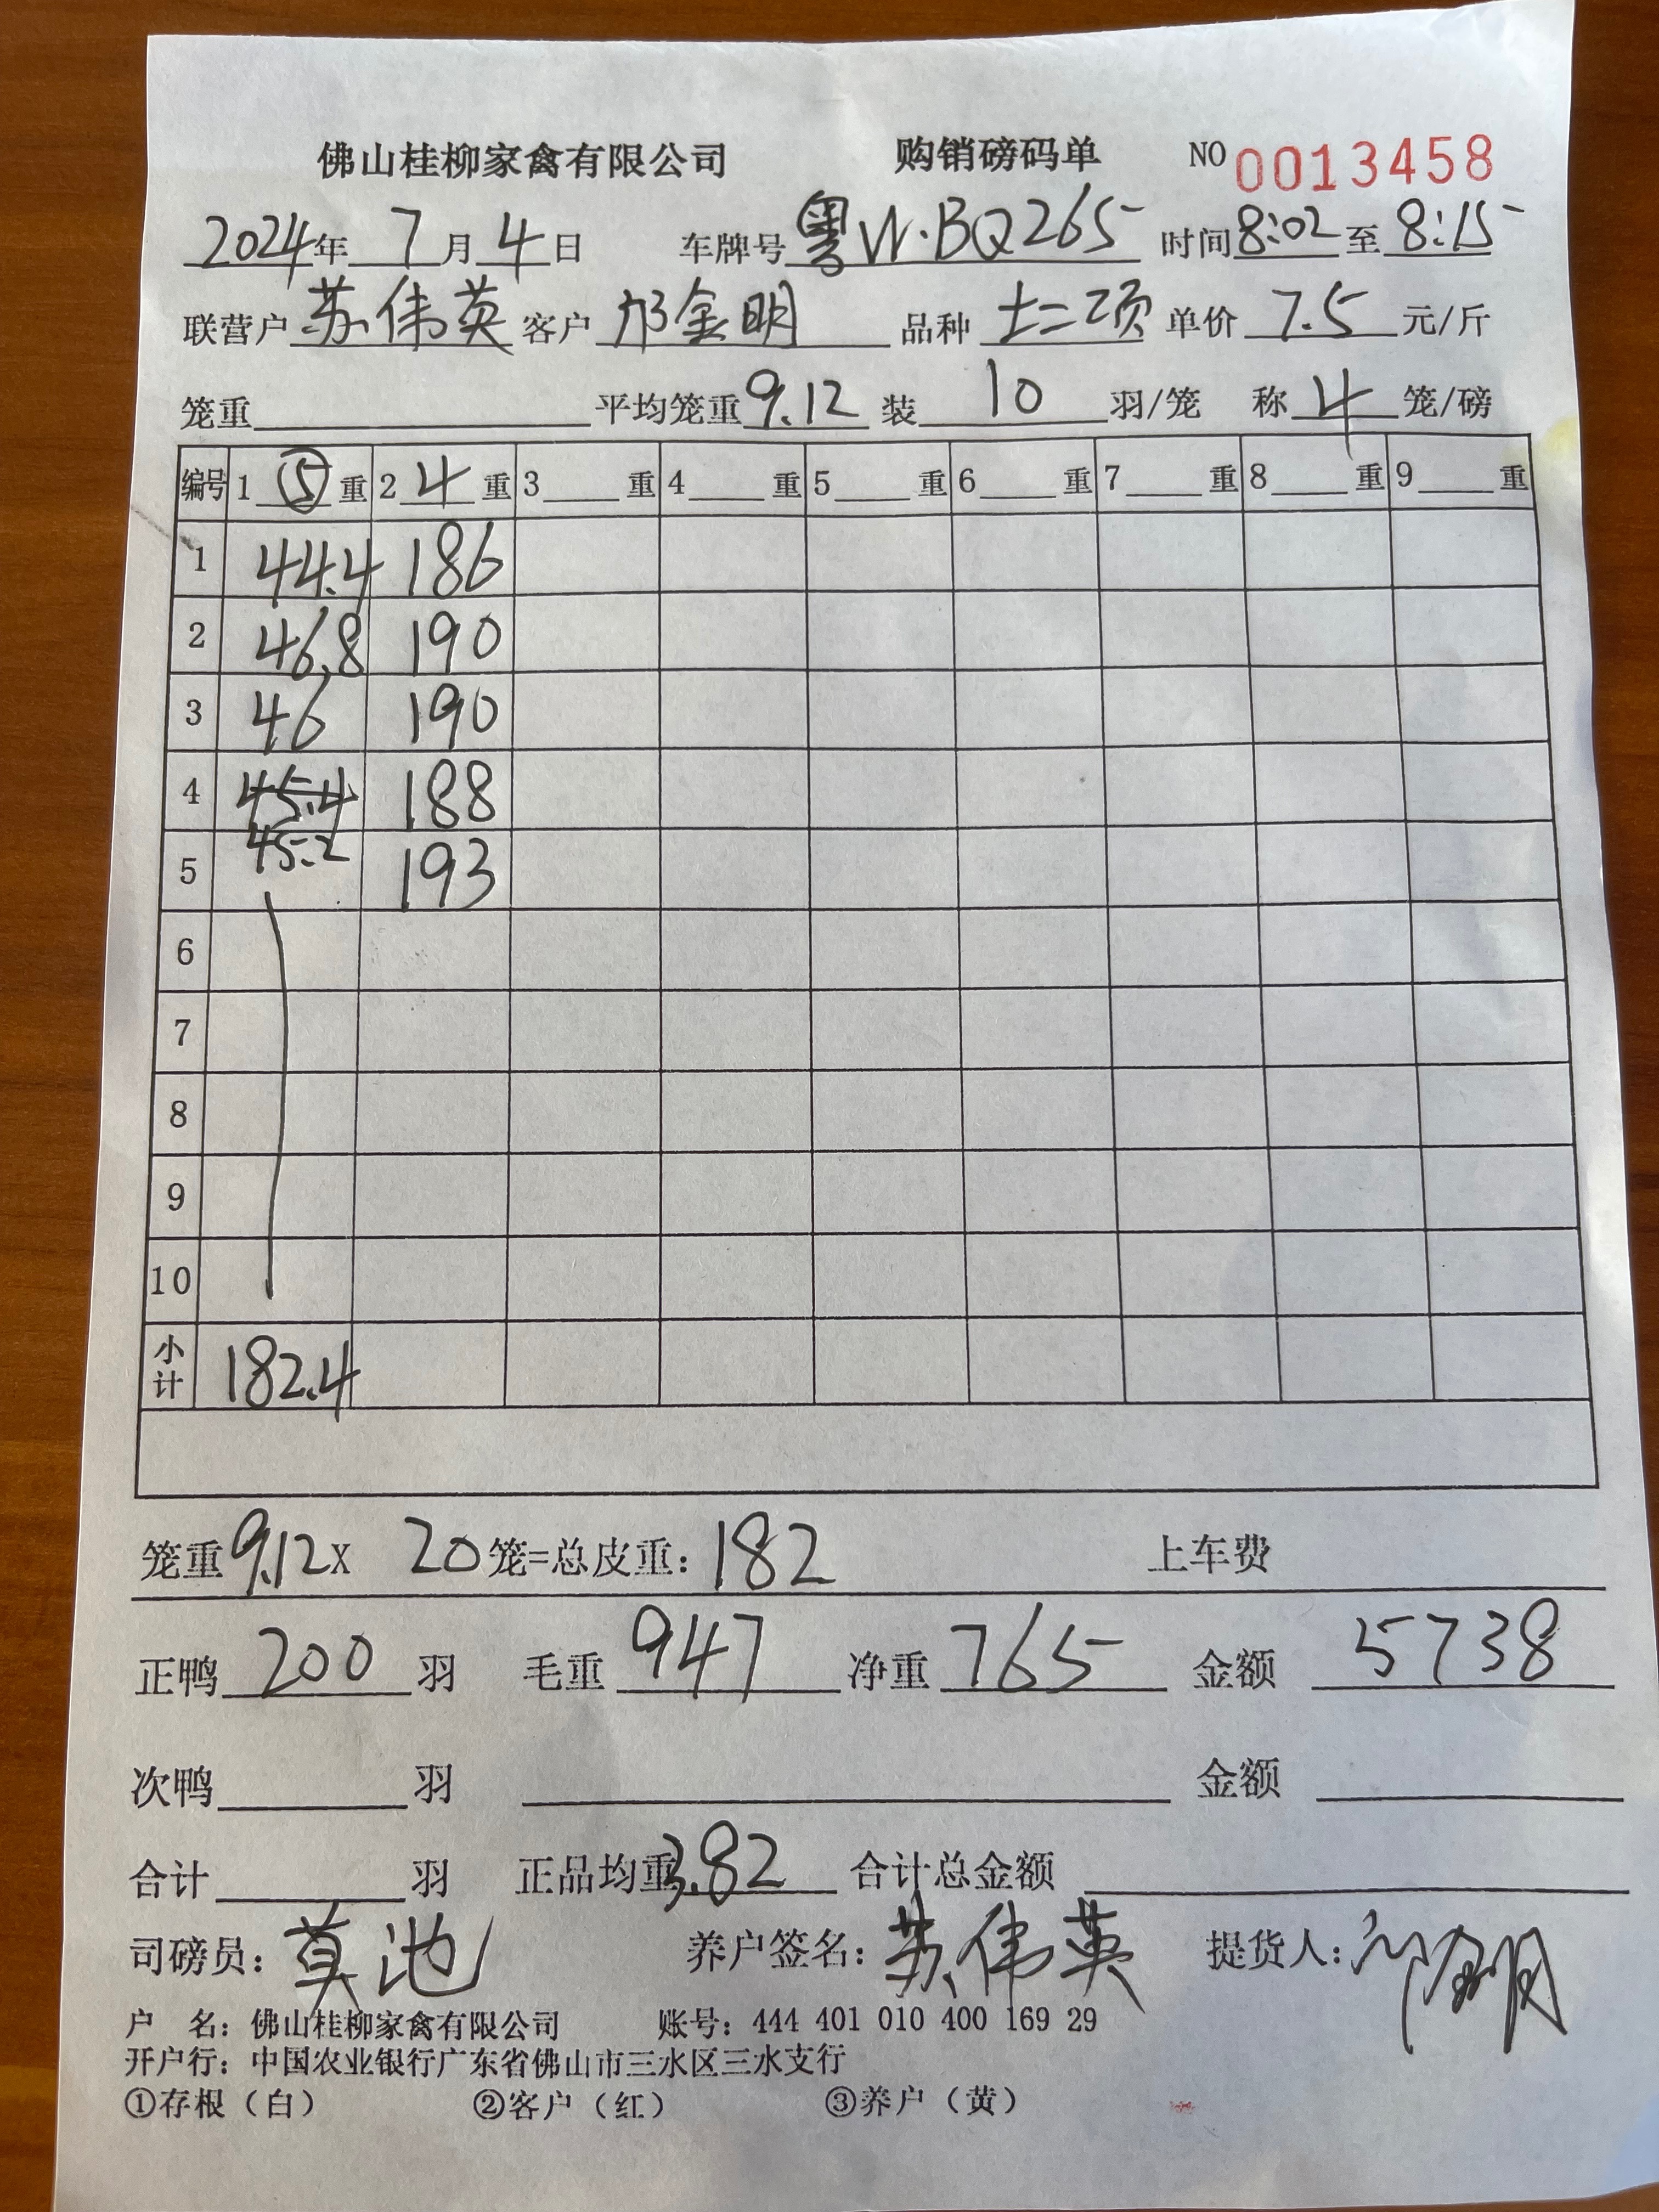 佛山桂柳家禽有限公司 购销磅码单 NO 0013458
2024年 7月 4日 车牌号 粤W·BQ265 时间 8:02 至 8:15
联营户 苏伟英 客户 邝金明 品种 土二项 单价 7.5 元/斤
笼重 平均笼重 9.12 装 10 羽/笼 称 4 笼/磅
编号 1 ⑤ 重 2 4 重 3 重 4 重 5 重 6 重 7 重 8 重 9 重
1 44.4 186
2 46.8 190
3 46 190
4 45.4 188
5 45.2 193
6
7
8
9
10
小计 182.4
笼重 9.12 X 20 笼=总皮重: 182 上车费
正鸭 200 羽 毛重 947 净重 765 金额 5738
次鸭 羽 金额
合计 羽 正品均重 3.82 合计总金额
司磅员: 莫池 养户签名: 苏伟英 提货人:
户 名: 佛山桂柳家禽有限公司 账号: 444 401 010 400 169 29
开户行: 中国农业银行广东省佛山市三水区三水支行
①存根（白） ②客户（红） ③养户（黄）